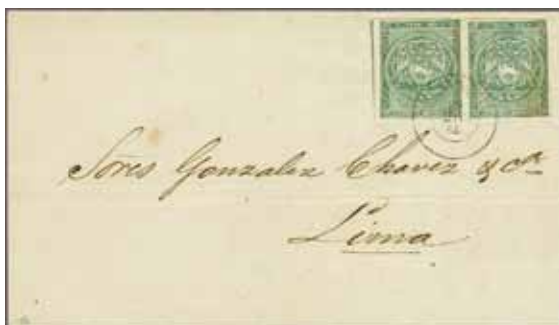 Sres Gonzalez Chavez & Ca
Lima